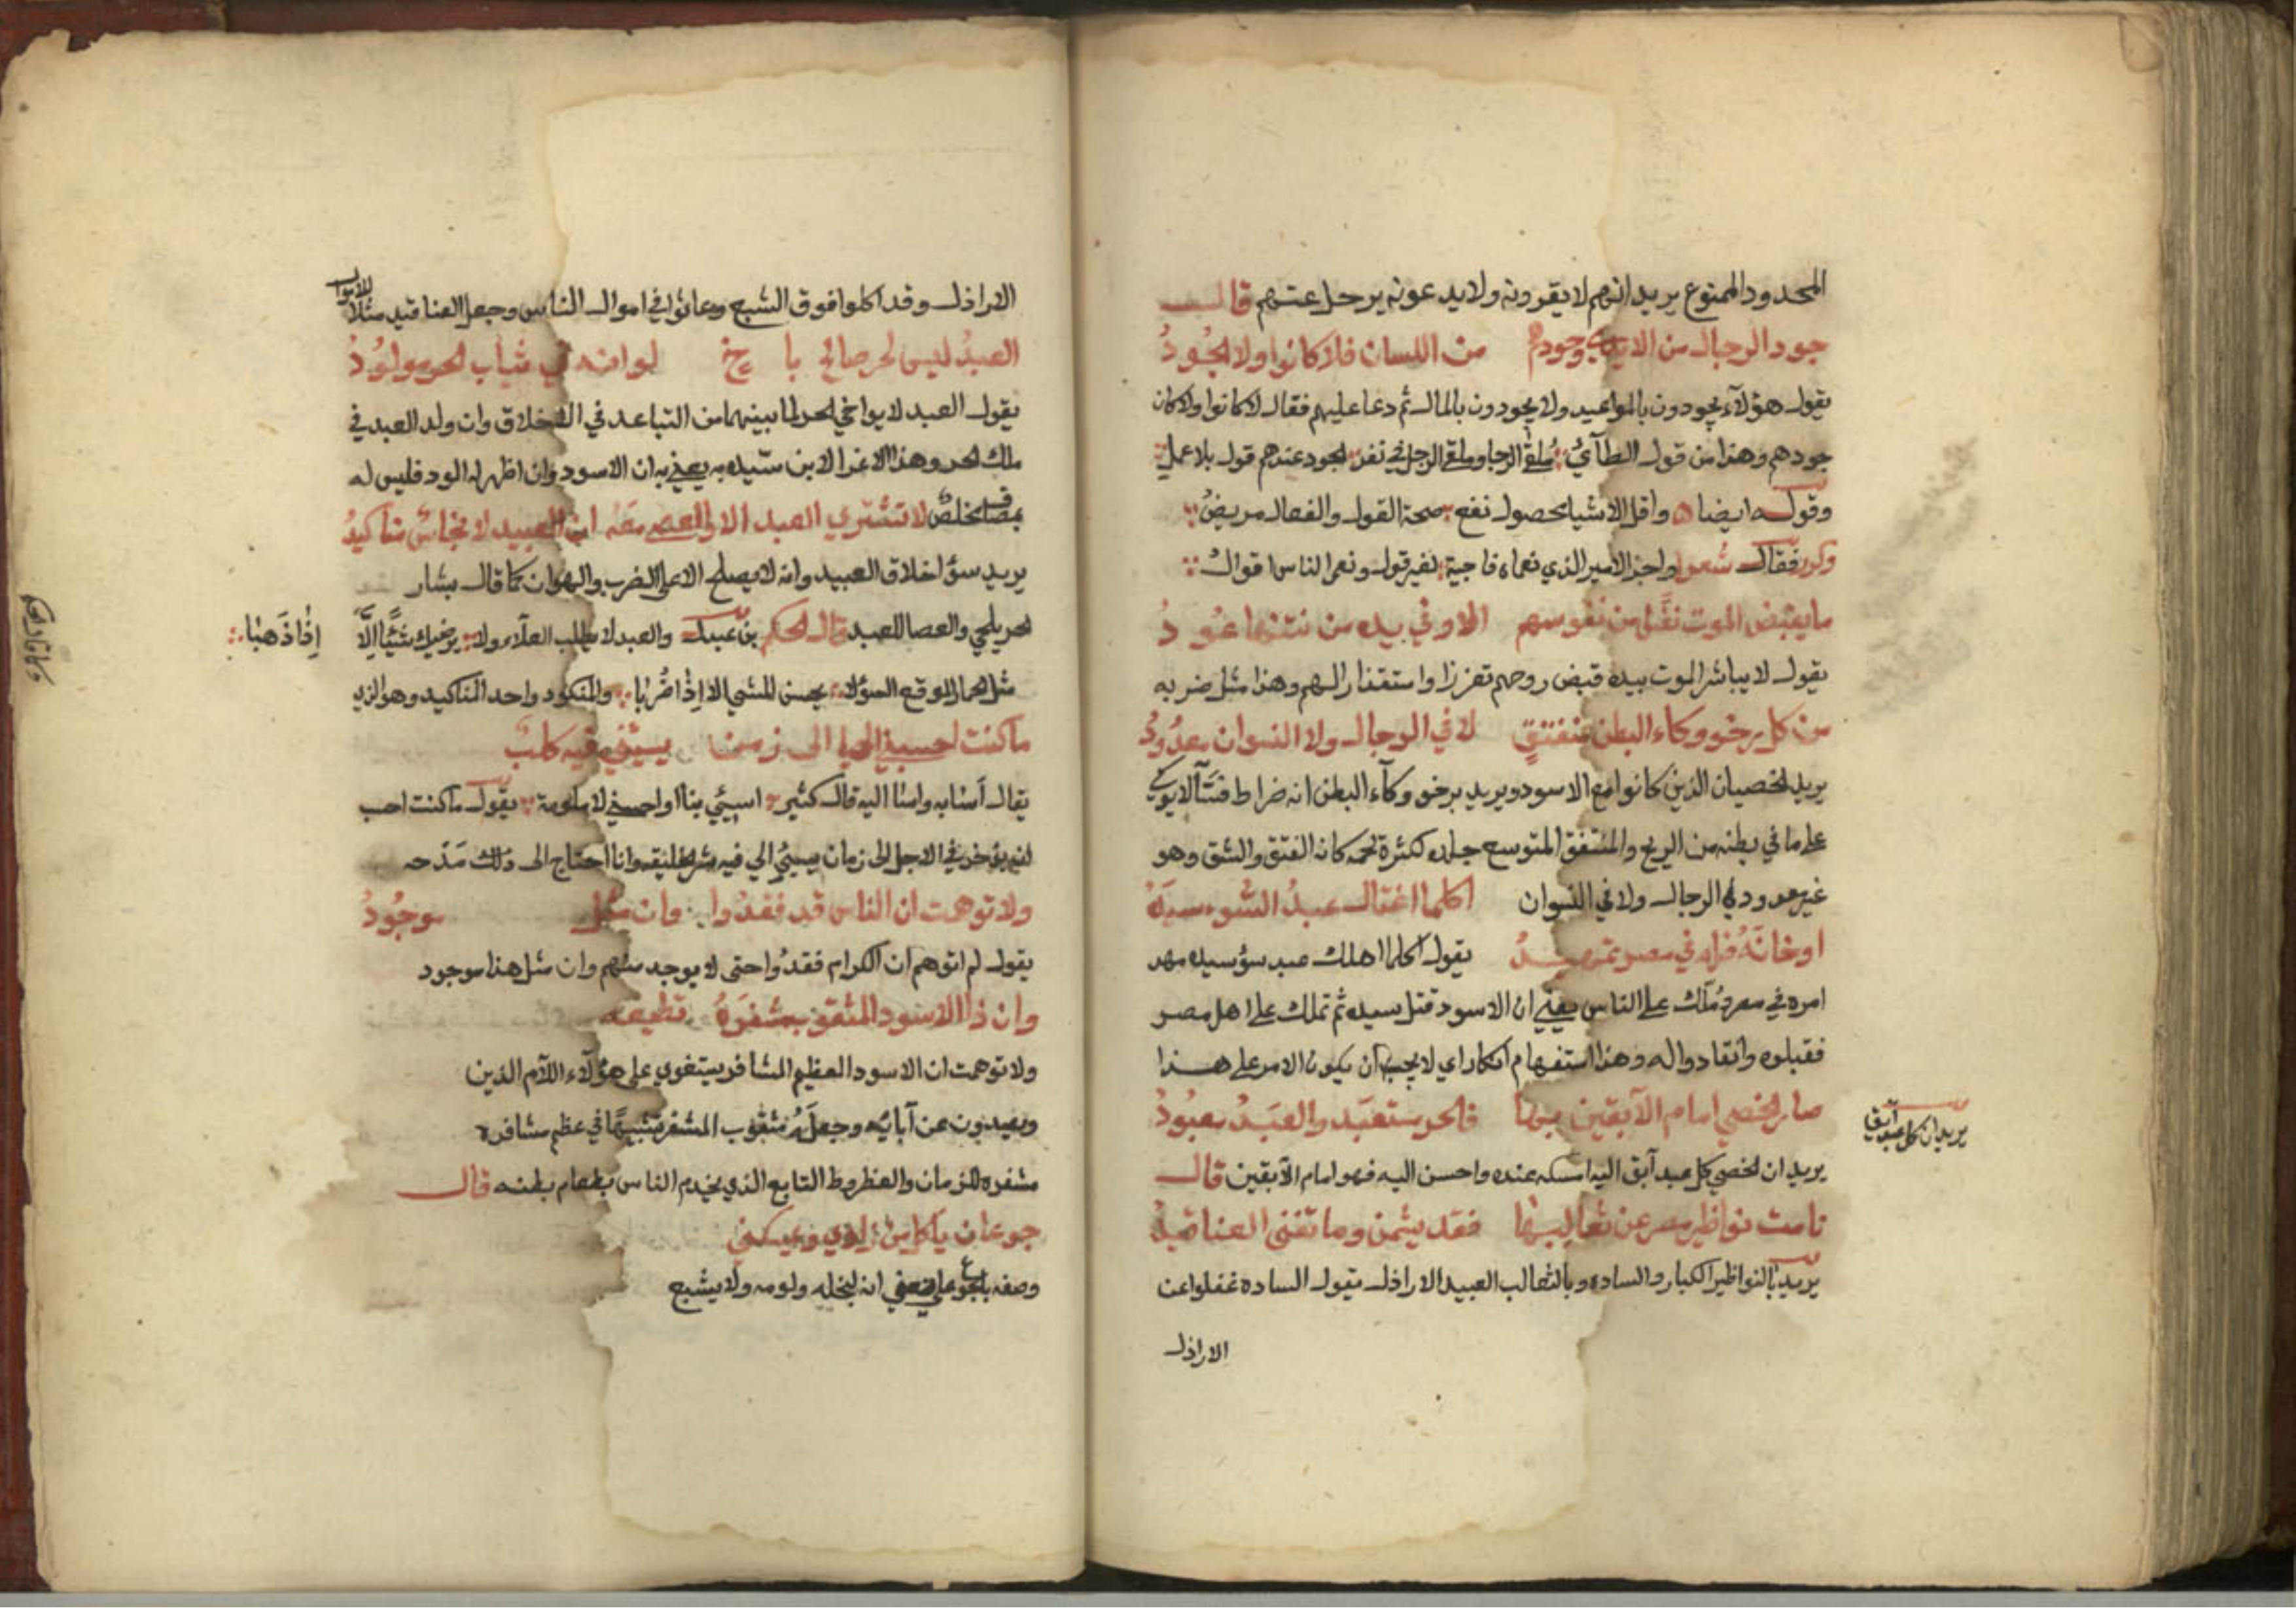 المحدود الممنوع يريد انهم لا يقرونه ولا يدعونه يرحل عنهم قال
جود الرجال من الايدي وجودهم من اللسان فلا كانوا ولا الجُودُ
يقول هؤلآء يجودون بالمواعيد ولا يجودون بالمال ثم دعا عليهم فقال لا كانوا ولا كان
جودهم وهذا من قول الطآئي مُلقَى الرجا وملقى الرحل في نفر الجود عندهم قول بلا عمل
وقوله ايضا واقل الاشيا محصول نفع صحة القول والفعال مريضُ
وكرر فقال شعر واجز الامير الذي نعماه فاجية بغير قول ونعما الناس اقوالُ
ما يقبض الموت نفسًا من نفوسهم الا وفي يده من نتنها عُودُ
يقول لا يباشر الموت بيده قبض روحهم تقززا واستقذارا لهم وهذا مثل ضربه
من كل رخو وكاء البطن منفتقٍ لا في الرجال ولا النسوان معدُودُ
يريد الخصيان الذين كانوا مع الاسود ويريد برخو وكآء البطن انه ضراط فسّآ لا يوكي
على ما في بطنه من الريح والمنفتق المتوسع جلده لكثرة لحمه كانه الفتق والشق وهو
غير معدود في الرجال ولا في النسوان اكلما اغتال عبدُ السّوء سيدَهُ
او خانَهُ فله في مصر تمهيدُ يقول اكلما اهلك عبد سؤ سيده مهد
امره في مصر ومُلّك على الناس يعني ان الاسود قتل سيده ثم تملك على اهل مصر
فقبلوه وانقادوا له وهذا استفهام انكار اي لا يجب ان يكون الامر على هذا
صار الخصي امام الآبقين بها فالحر مستعبَد والعبَدُ معبُودُ
يريد ان كل عبد آبق
يريد ان الخصي كل عبد آبق اليه امسكه عنده واحسن اليه فهو امام الآبقين قال
نامت نواظير مصر عن ثعالبها فقد بشمن وما تفنى العناقيدُ
يريد بالنواظير الكبار والساده وبالثعالب العبيد الاراذل يقول الساده غفلوا عن
الاراذل
الاراذل وقد اكلوا فوق الشبع وعاثوا في اموال الناس وجعل العناقيد مثلا للاموال
العبدُ ليس لحر صالح باخ لو انه في ثياب الحر مولُودُ
يقول العبد لا يواخي الحر لما بينهما من التباعد في الاخلاق وان ولد العبد في
ملك الحر وهذا الاغرا لابن سيّده به يعني به ان الاسود وان اظهر له الود فليس له
بمصافٍ مخلص لا تشتري العبد الا والعصى معَه ان العبيد لانجاسٌ مناكيدُ
يريد سؤ اخلاق العبيد وانه لا يصلح الا على الضرب والهوان كما قال بشار
الحر يلحي والعصا للعبد قال الحكم بن عبدل والعبد لا يطلب العلآء ولا يرضيك شيًا الّا إذا ذهبا
مثل الحمار الموقع السؤ لا يحسن المشي الا اذا ضُربا والمنكود واحد المناكيد وهو الذي
ما كنت احسبني احيا الى زمن يسيئني فيه كلبٌ
يقال أسا به واسا اليه قال كثير اسيئي بنا او احسني لا ملومة يقول ما كنت احسب
انه يؤخرني الاجل الى زمان يسيئ الي فيه شر الخليقه وانا احتاج الى ذلك مَدْحه
ولا توهمت ان الناس قد فقدُوا وان مثل موجُودُ
يقول لم اتوهم ان الكرام فقدُوا حتى لا يوجد مثلهم وان مثل هذا موجود
وان ذا الاسود المثقوب مشفَرهُ تطيعه
ولا توهمت ان الاسود العظيم المشافر يستغوي على هؤلآء اللآم الذين
ويعبدون عن آبائه وجعلَهُ مثقوب المشفر تشبيهًا في عظم مشافره
مشفره للزمان والعضروط التابع الذي يخدم الناس بطعام بطنه قال
جوعان ياكل من زادي ويمسكني
وصفه بالجوع على معنى انه لبخله ولومه ولا يشبع